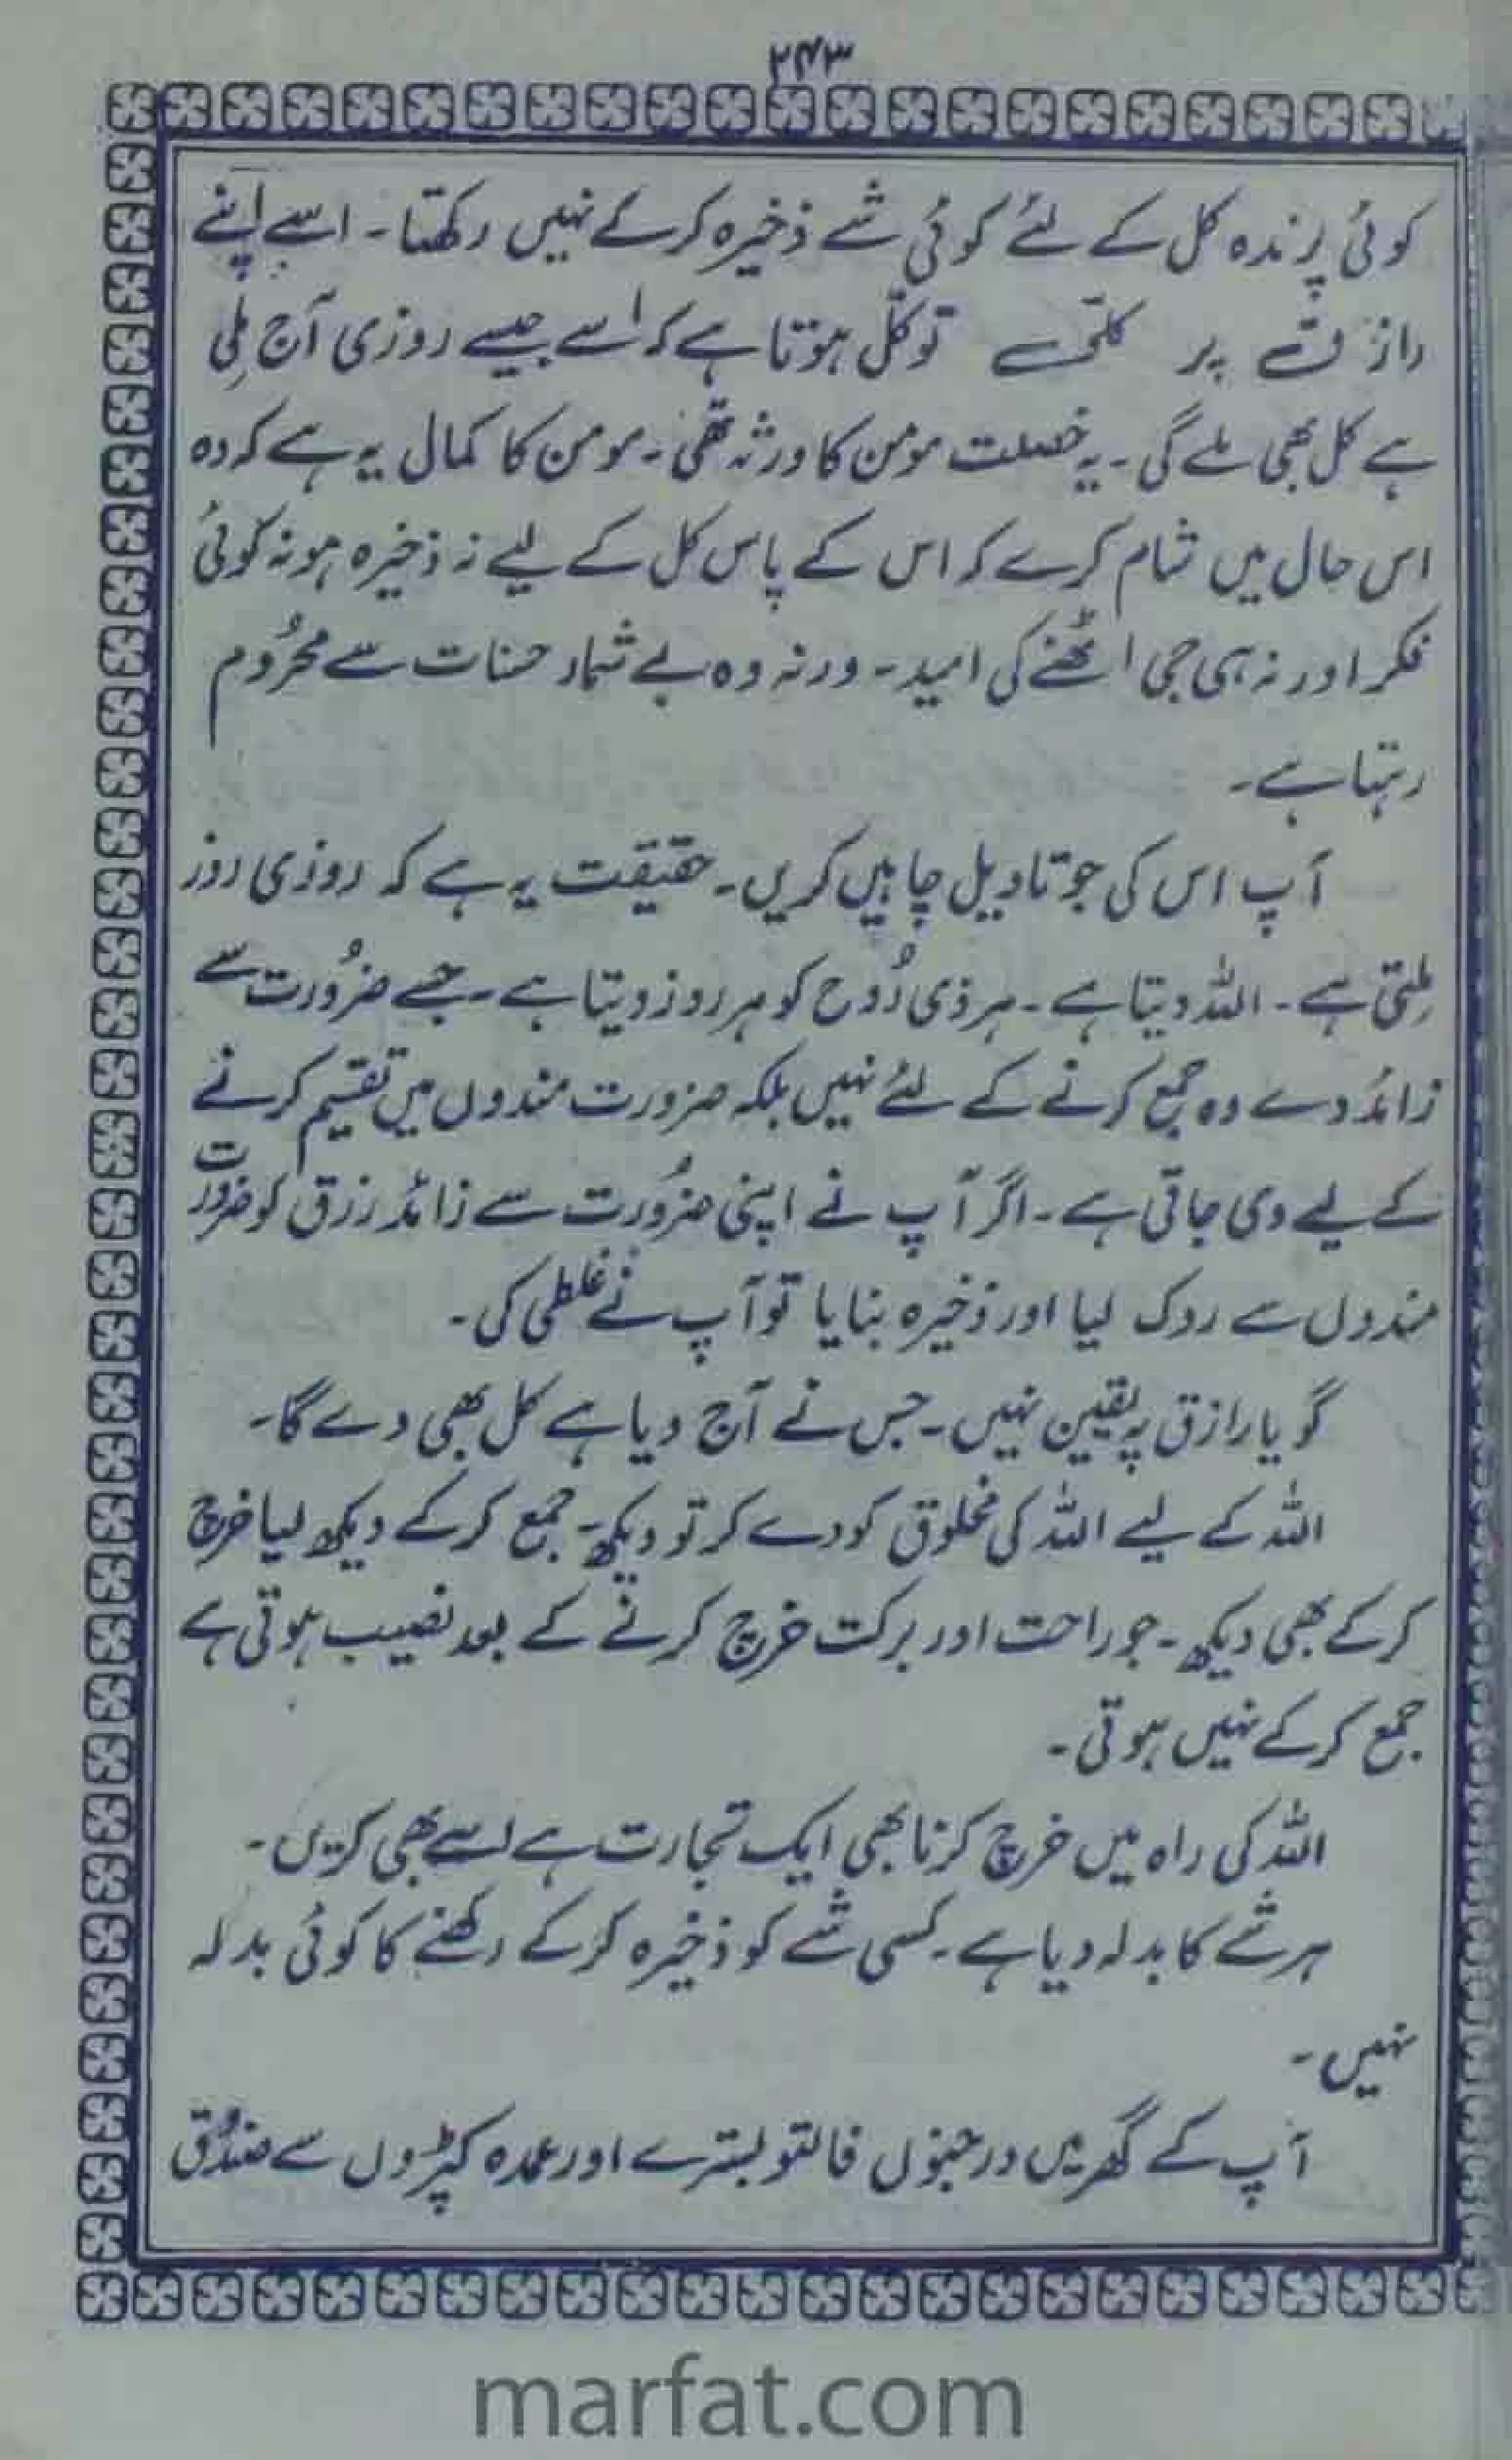 ۲۴۳
کوئی پرندہ کل کے لئے کوئی شے ذخیرہ کرکے نہیں رکھتا۔ اسے اپنے
رازق پر کلّی توکّل ہوتا ہے کہ اسے جیسے روزی آج مِلی
ہے کل بھی ملے گی۔ یہ خصلت مومن کا ورثہ تھی۔ مومن کا کمال یہ ہے کہ وہ
اس حال میں شام کرے کہ اس کے پاس کل کے لیے نہ ذخیرہ ہو نہ کوئی
فکر اور نہ ہی جی اٹھنے کی امید۔ ورنہ وہ بے شمار حسنات سے محرُوم
رہتا ہے۔
آپ اس کی جو تاویل چاہیں کریں۔ حقیقت یہ ہے کہ روزی روز
مِلتی ہے۔ اللہ دیتا ہے۔ ہر ذی رُوح کو ہر روز دیتا ہے۔ جسے ضرُورت سے
زائد دے وہ جمع کرنے کے لئے نہیں بلکہ ضرورت مندوں میں تقسیم کرنے
کے لیے دی جاتی ہے۔ اگر آپ نے اپنی ضرُورت سے زائد رزق کو ضرورت
مندوں سے روک لیا اور ذخیرہ بنایا تو آپ نے غلطی کی۔
گویا رازق پہ یقین نہیں۔ جس نے آج دیا ہے کل بھی دے گا۔
اللہ کے لیے اللہ کی مخلوق کو دے کر تو دیکھ۔ جمع کر کے دیکھ لیا خرچ
کر کے بھی دیکھ۔ جو راحت اور برکت خرچ کرنے کے بعد نصیب ہوتی ہے
جمع کر کے نہیں ہوتی۔
اللہ کی راہ میں خرچ کرنا بھی ایک تجارت ہے اسے بھی کریں۔
ہر شے کا بدلہ دیا ہے۔ کسی شے کو ذخیرہ کر کے رکھنے کا کوئی بدلہ
نہیں۔
آپ کے گھر میں درجنوں فالتو بسترے اور عمدہ کپڑوں سے صندُوق
marfat.com